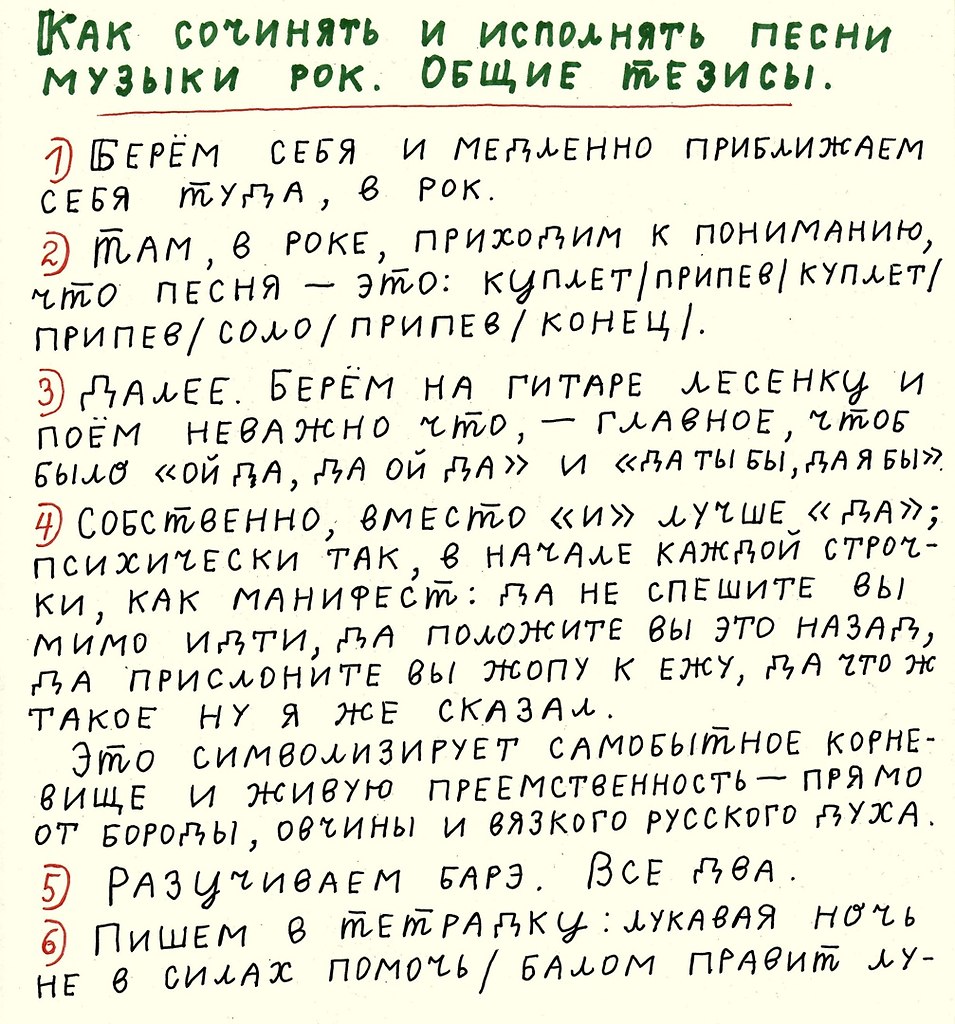 Как сочинять и исполнять песни
музыки рок. Общие тезисы.
1) Берём себя и медленно приближаем
себя туда, в рок.
2) Там, в роке, приходим к пониманию,
что песня — это: куплет/припев/куплет/
припев/соло/припев/конец/.
3) Далее. Берём на гитаре лесенку и
поём неважно что, — главное, чтоб
было «ой да, да ой да» и «да ты бы, да я бы».
4) Собственно, вместо «и» лучше «да»;
психически так, в начале каждой строч-
ки, как манифест: да не спешите вы
мимо идти, да положите вы это назад,
да прислоните вы жопу к ежу, да что ж
такое ну я же сказал.
Это символизирует самобытное корне-
вище и живую преемственность — прямо
от бороды, овчины и вязкого русского духа.
5) Разучиваем барэ. Все два.
6) Пишем в тетрадку: лукавая ночь
не в силах помочь/ балом правит лу-